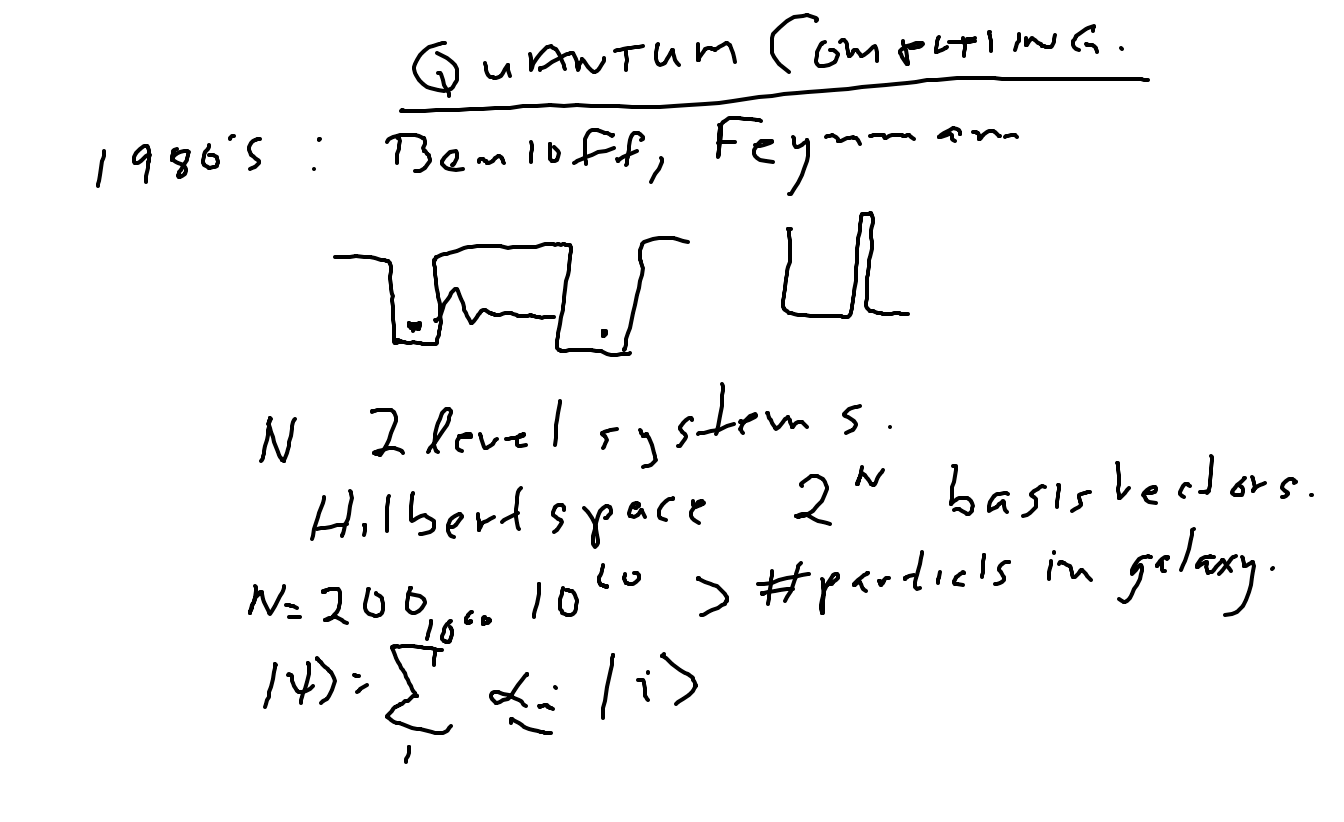 QUANTUM COMPUTING.
1980's : Benioff, Feynman
N 2 level systems.
Hilbert space 2^N basis vectors.
N=200 10^60 > #particls in galaxy.
|ψ> = ∑_1^{10^60} α_i |i>